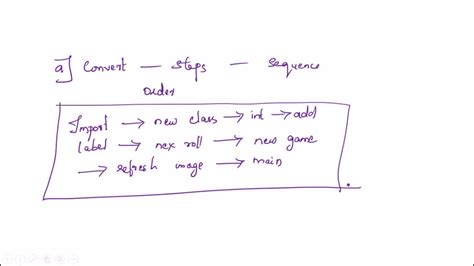 a] Convert — steps — sequence
order
Import → new class → int → add
label → nex roll → new game
→ refresh image → main